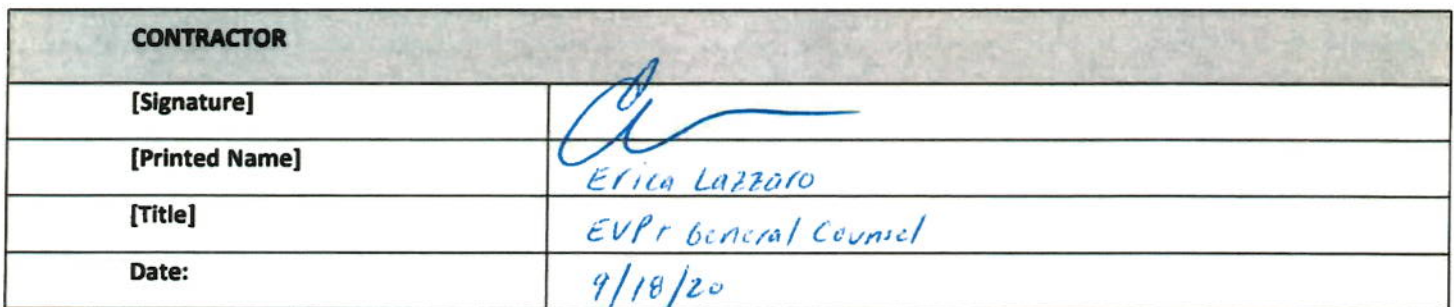 CONTRACTOR
[Signature]
[Printed Name] Erica Lazzaro
[Title] EVP + General Counsel
Date: 9/18/20